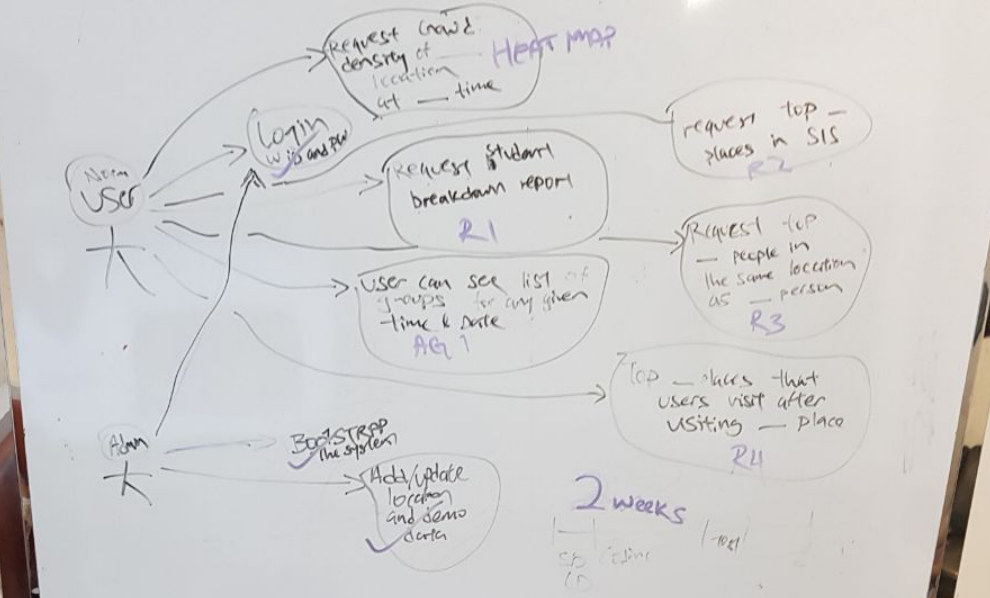 Request Crowd
density of
location
at __ time
HEAT MAP
Login
w ID and PW
request top _
places in SIS
R2
Norm
User
Request Student
breakdown report
R1
Request top
_ people in
the same location
as _ person
R3
User can see list of
groups for any given
time & Date
AG 1
Top _ places that
users visit after
visiting _ place
R4
Admin
BOOTSTRAP
the system
Add/update
location
and demo
data
2 weeks
SD
CD